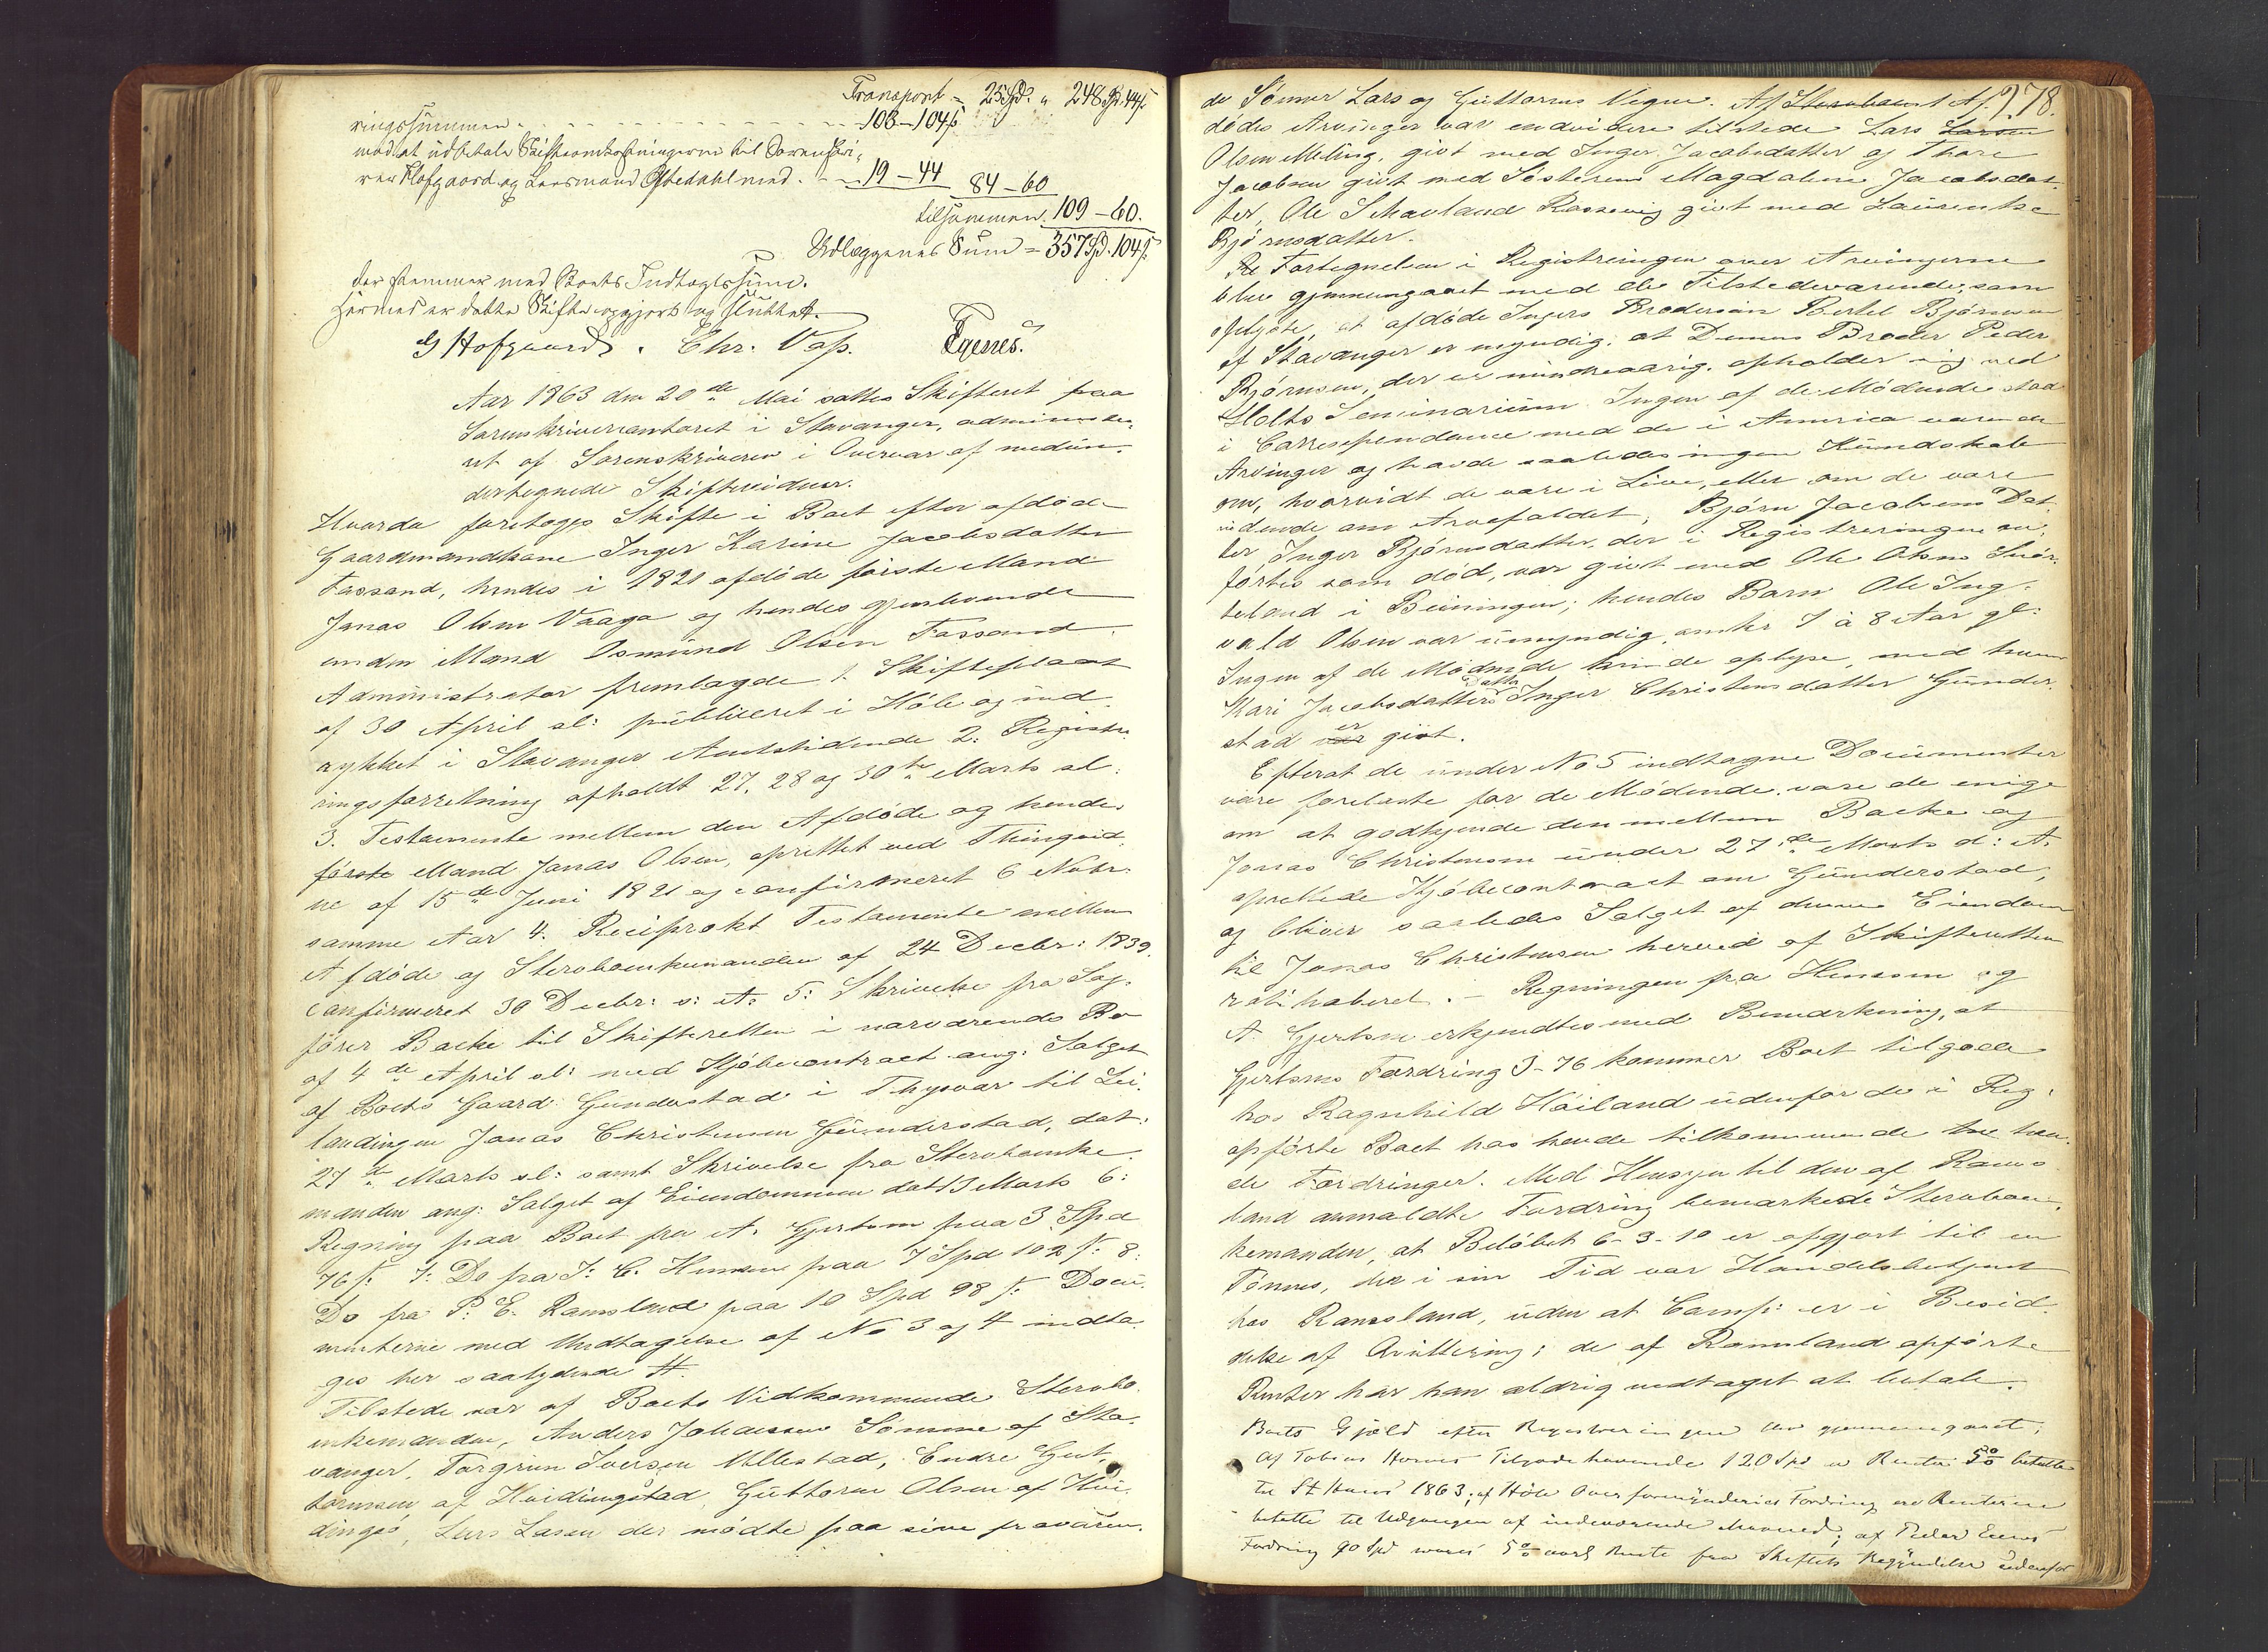 Transport = 25 Spd. " 248 Spd. 44 ß
ringssummen . . . . 103 – 104 ß
mod at udbetale Skifteomkostningerne til Sorenskri-
ver Hofgaard og Lensmand Østedahl med . . 19 – 44 84 – 60
tilsammen 109 – 60.
Udlæggenes Sum = 357 Spd. 104 ß
der stemmer med Boets Indtægtssum.
Hermed er dette Skifte opgjort og sluttet.
G Hofgaard. Chr. Vaß. Egenes.
Aar 1863 den 20de Mai sattes Skifteret paa
Sorenskrivercontoret i Stavanger, administre-
ret af Sorenskriveren i Overvær af medun-
dertegnede Skiftevidner.
Hvorda foretoges Skifte i Boet efter afdøde
Gaardmandskone Inger Karine Jacobsdatter
Fossand, hendes i 1821 afdøde første Mand
Jonas Olsen Vaaga og hendes gjenlevende
anden Mand Osmund Olsen Fossand.
Administrator fremlagde 1. Skifteplacat
af 30 April sl: publiceret i Høle og ind-
rykket i Stavanger Amtstidende 2. Registre-
ringsforretning afholdt 27, 28 og 30te Marts sl:
3. Testamente mellem den Afdøde og hendes
første Mand Jonas Olsen, oprettet ved Thingvid-
ne af 15de Juni 1821 og confirmeret 6 Novbr.
samme Aar 4. Reciprokt Testamente mellem
Afdøde og Stervboenkemanden af 24 Decbr: 1839.
confirmeret 30 Decbr: s: A: 5: Skrivelse fra Sag-
fører Backe til Skifteretten i nærværende Bo
af 4de April sl: med Kjøbecontract ang: Salget
af Boets Gaard Gunderstad i Thysvær til Lei-
lændingen Jonas Christensen Gunderstad, dat:
27de Marts sl: samt Skrivelse fra Stervboenke-
manden ang: Salget af Eiendommen dat 13 Marts 6:
Regning paa Boet fra A. Gjertsen paa 3 Spd
76 ß: 7: Do fra J: C. Hansen paa 7 Spd 102 ß: 8:
Do fra P. E. Ramsland paa 10 Spd 98 ß: Docu-
menterne med Undtagelse af No 3 og 4 indta-
ges her saalydende #.
Tilstede var af Boets Vidkommende Stervbo-
enkemanden, Anders Johannsen Sømme af Sta-
vanger, Torgrim Iversen Ullestad, Endre Gut-
tormsen af Hvidingstad, Guttorm Olsen af Hvi-
dingsø, Lars Larsen der mødte paa sine fraværen-
278.
de Sønner Lars og Guttorms Vegne. Af Stervboens Af-
dødes Arvinger var endvidere tilstede Lars Larsen
Olsen Meling, givt med Inger Jacobsdatter og Thore
Jacobsen givt med Søsteren Magdalene Jacobsdat-
ter, Ole Schavland Rossevig givt med Laurentse
Bjørnsdatter.
Re Fortegnelsen i Registreringen over Arvingerne
blev gjennemgaaet med de Tilstedeværende, som
oplyste, at afdøde Ingers Brodersøn Bertel Bjørnsen
af Stavanger er myndig, at Dennes Broder Peder
Bjørnsen, der er mindreaarig, opholder sig ved
Holts Seminarium. Ingen af de Mødende stod
i Correspondance med de i America værende
Arvinger og havde saaledes ingen Kundskab
om, hvorvidt de vare i Live, eller om de vare
vidende om Arvefaldet; Bjørn Jacobsens Dat-
ter Inger Bjørnsdatter, der i Registreringen an-
førtes som død, var givt med Ole Olsen Snør-
teland i Beiningen; hendes Barn Ole Ing-
vald Olsen var umyndig, omtr 7 à 8 Aar gl:
Ingen af de Mødende kunde oplyse, med hvem
Kari Jacobsdatters Datter Inger Christensdatter Gunder-
stad var er givt.
Efterat de under No 5 indtagne Documenter
vare forelæste for de Mødende, vare de enige
om at godkjende den mellem Backe og
Jonas Christensen under 27de Marts d: A.
oprettede Kjøbecontract om Gunderstad,
og bliver saaledes Salget af denne Eiendom
til Jonas Christensen herved af Skifteretten
ratihaberet. – Regningen fra Hansen og
A. Gjertsen erkjendtes med Bemærkning, at
Gjertsens Fordring 3-76 kommer Boet tilgode
hos Ragnhild Høiland udenfor de i Reg.
opførte Boet hos hende tilkommende tre hæn-
de Fordringer. Med Hensyn til den af Rams-
land anmeldte Fordring bemærkede Stervboen-
kemanden, at Beløbet 6-3-10 er opgjort til en
Tønnes, der i sin Tid var Handelsbetjent
hos Ramsland, uden at Comp: er i Besid-
delse af Qvittering; de af Ramsland opførte
Renter har han aldrig vedtaget at betale.
Boets Gjæld efter Registreringen blev gjennemgaaet;
af Tobias Hornes Tilgodehavende 120 Spd er Renten 5% betalte
til St Hans 1863; af Høle Overformynderies Fordring ere Renterne
betalte til Udgangen af indeværende Maaned; af Peder Eenes
Fordring 90 Spd svares 5% aarl Rente fra Skiftets Begyndelse udenfor